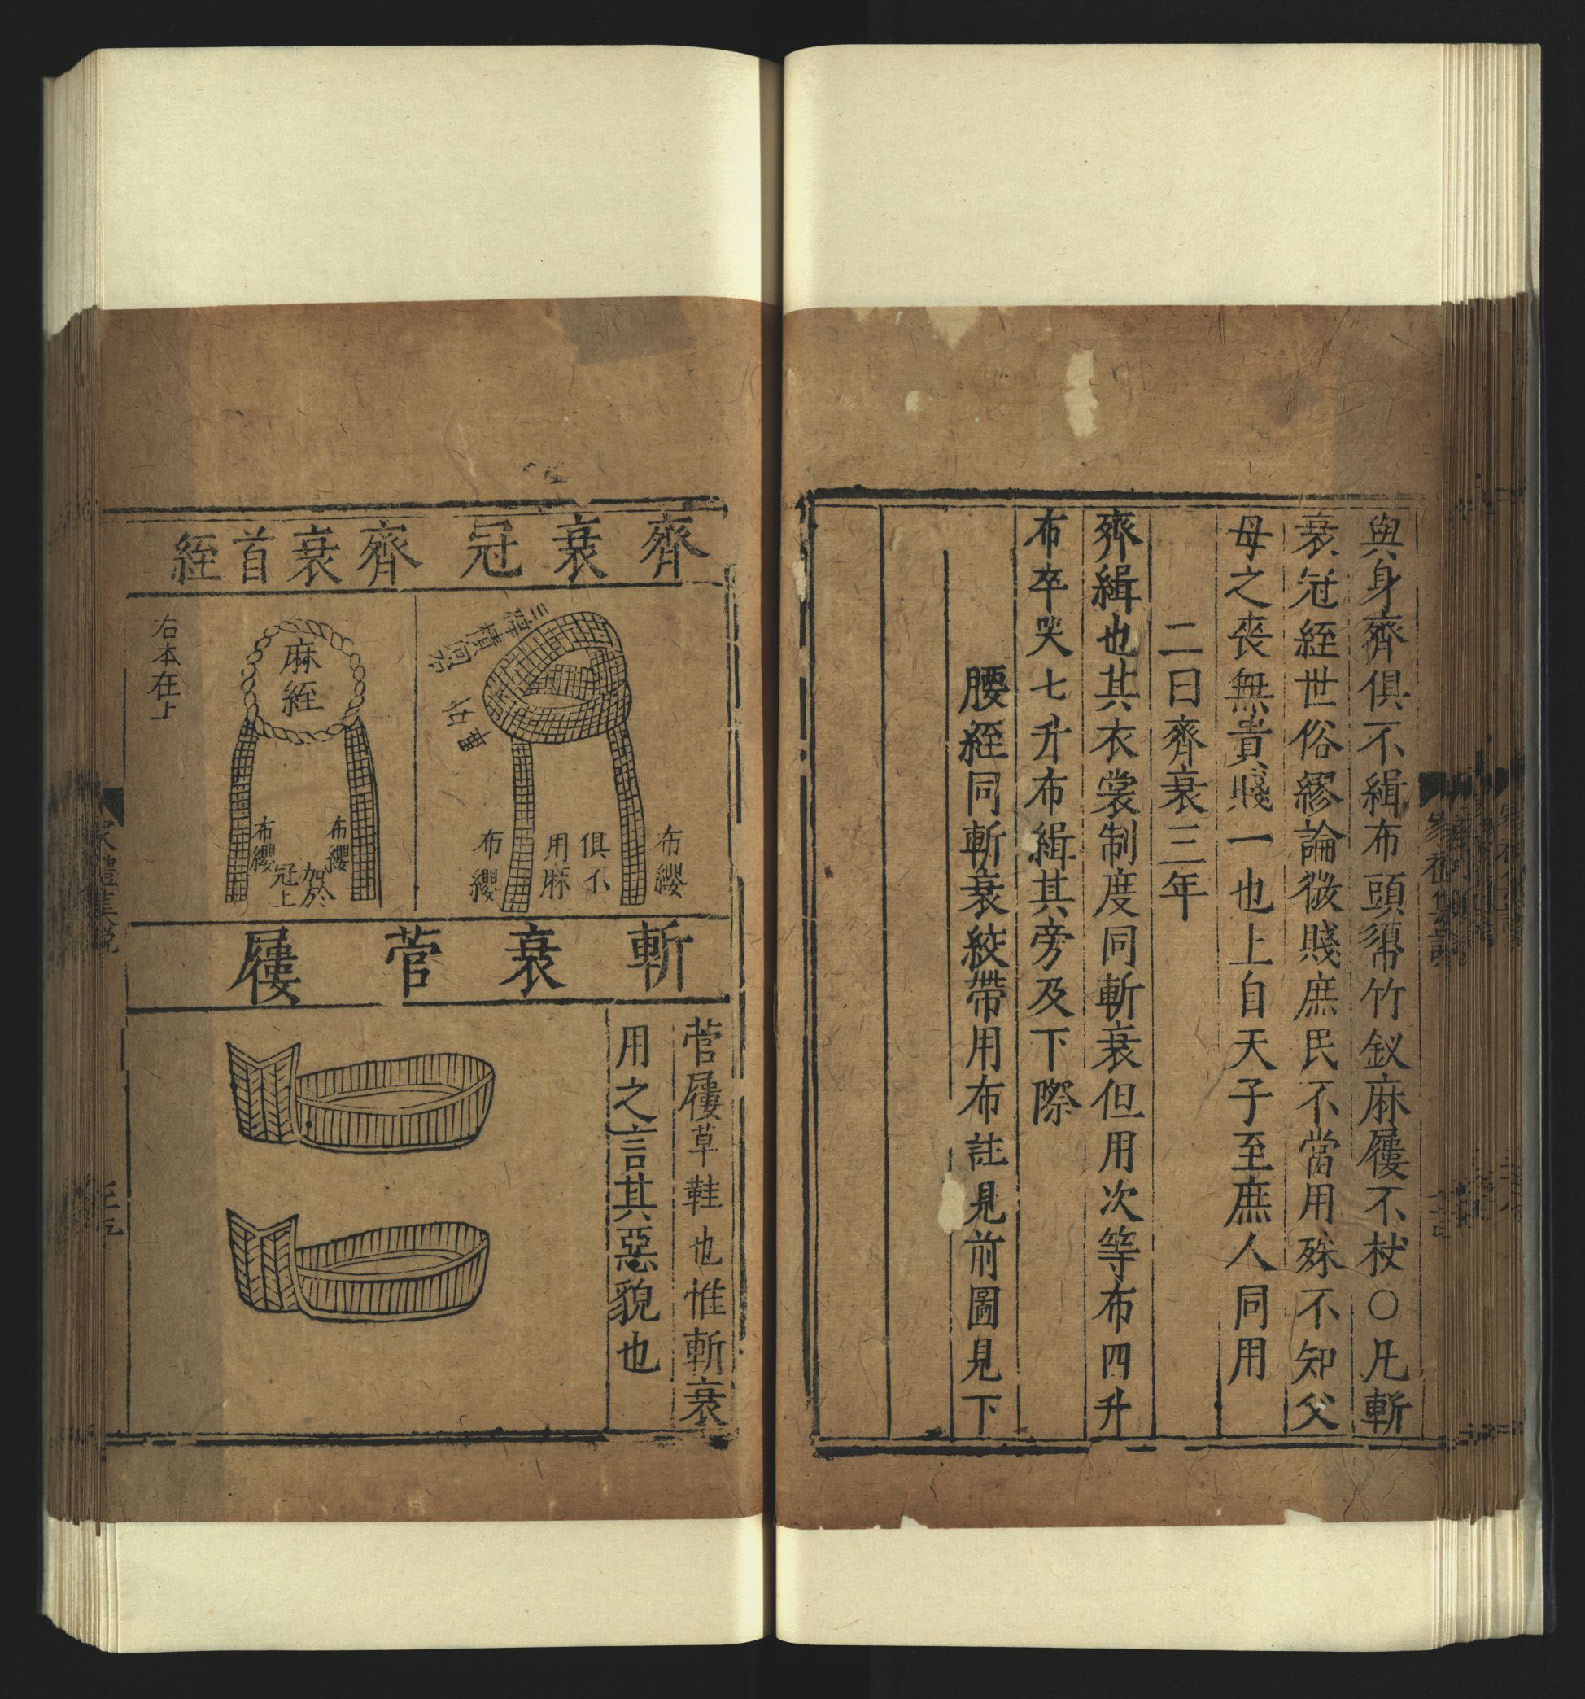 與身齊俱不緝布頭𢄼竹釵麻屨不杖○凡斬
衰冠絰世俗繆論微賤庶民不當用殊不知父
母之喪無貴賤一也上自天子至庶人同用
二曰齊衰三年
齊緝也其衣裳制度同斬衰但用次等布四升
布卒哭七升布緝其旁及下際
腰絰同斬衰絞帶用布註見前圖見下
齊衰冠
布纓
俱不
用麻
布纓
齊衰首絰
麻絰
布纓
加於
冠上
布纓
右本在上
斬衰菅屨
菅屨草鞋也惟斬衰
用之言其惡貌也
家禮集說